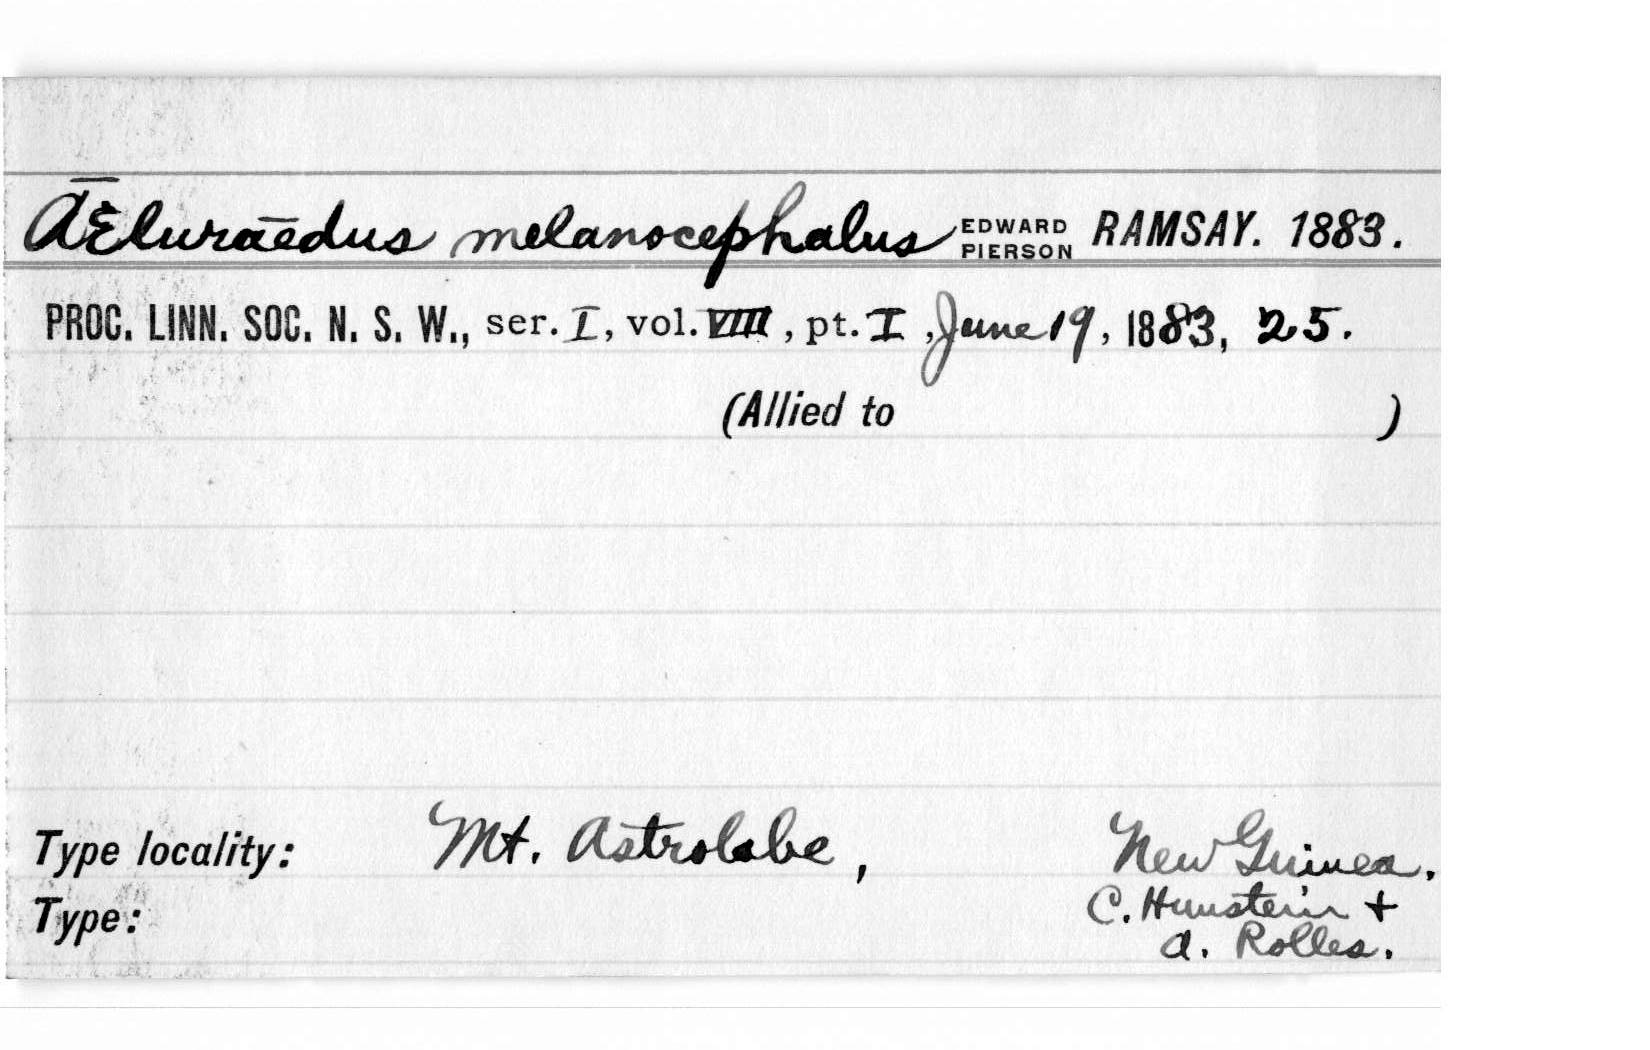 AEluraedus melanocephalus EDWARD PIERSON RAMSAY. 1883.
PROC. LINN. SOC. N. S. W., ser. I, vol. VIII, pt. I, June 19, 1883, 25.
(Allied to )
Type locality: Mt. Astrolabe, New Guinea.
Type: C. Hunstein +
A. Rolles.